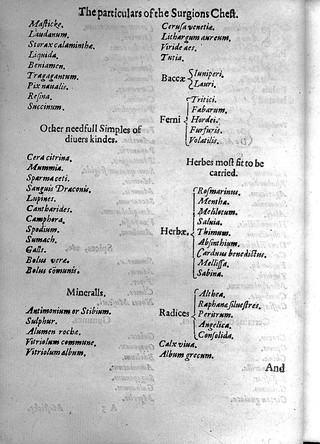 The particulars of the Surgions Chest.
Masticke.
Laudanum.
Storax calaminthæ.
Liquida.
Beniamen.
Tragagantum.
Pix naualis.
Resina,
Succinum.
Other needfull Simples of
diuers kindes.
Cera citrina.
Mummia.
Sparma ceti.
Sanguis Draconis.
Lupines.
Cantharides.
Camphora.
Spodium.
Sumach.
Galls.
Bolus vera.
Bolus cōmunis.
Mineralls.
Antimonium or Stibium.
Sulphur.
Alumen roche.
Vitriolum commune.
Vitriolum album.
Cerusa venetia.
Lithargum aureum.
Viride æs.
Tutia.
Baccæ
Iuniperi,
Lauri.
Ferni
Tritici.
Fabarum.
Hordei.
Furfuris.
Volatilis.
Herbes most fit to be
carried.
Herbæ,
Rosmarinus.
Mentha.
Melilotum.
Saluia,
Thimum.
Absinthium.
Carduus benedictus.
Mellissa.
Sabina.
Radices
Althea.
Raphane siluestres.
Peritrum.
Angelica.
Consolida.
Calx viua.
Album grecum.
And